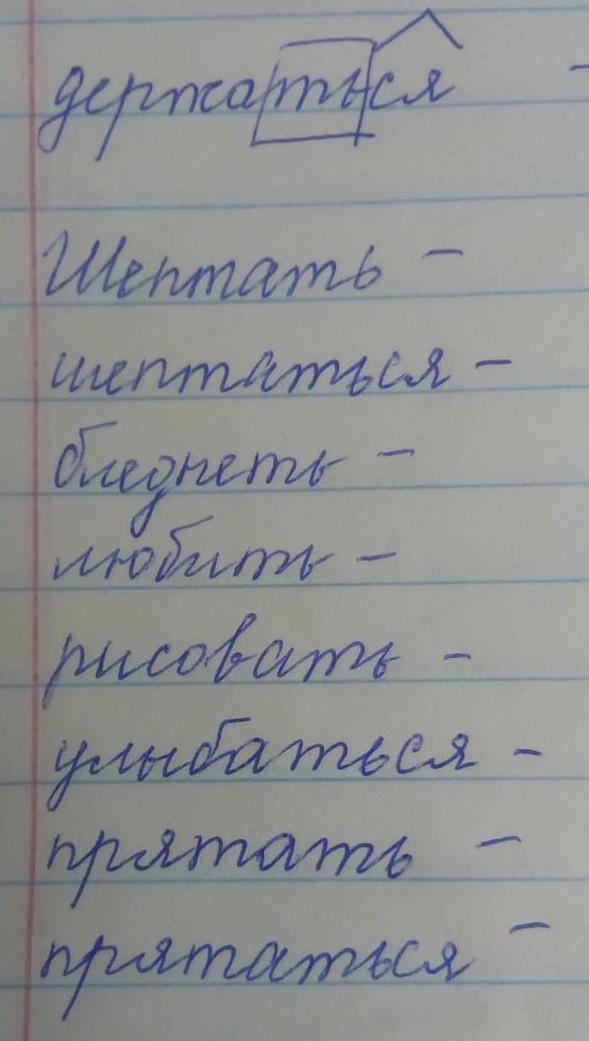 держаться -
Шептать -
шептаться -
бледнеть -
любить -
рисовать -
улыбаться -
прятать -
прятаться -